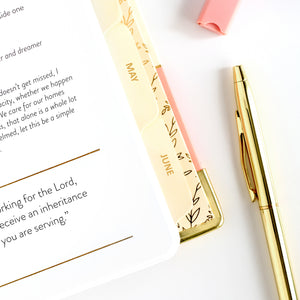 side one
er and dreamer
doesn't get missed, I
pacity, whether we happen
We care for our homes
s, that alone is a whole lot
elmed, let this be a simple
rking for the Lord,
eceive an inheritance
you are serving."
MAY
JUNE